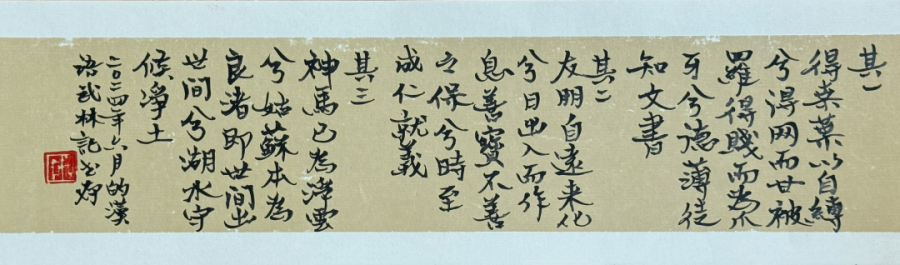 其一
得桑葉以自縛
兮得网而甘被
羅得賤而為爪
牙兮德薄徒
知文書
其二
友朋自遠來化
兮日出入而作
息善寶不善
之保兮時至
成仁就義
其三
神馬已為浮雲
兮姑蘇本為
良渚即世間出
世間兮湖水守
候淨土
二〇二四年六月的漢
语武林記